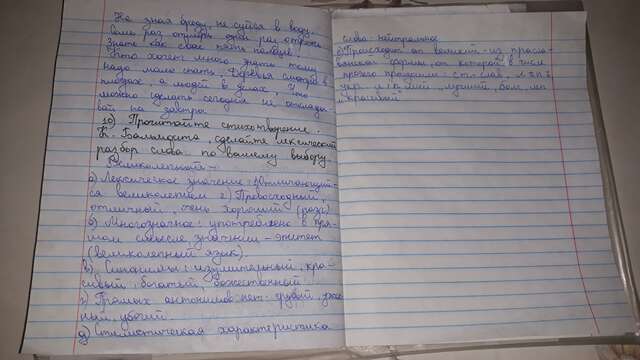 Не зная броду, не суйся в воду.
Семь раз отмерь один раз отрежь
Знать как свои пять пальцев.
Кто хочет много знать тому
надо мало спать, Деревья смотри в
плодах, а людей в делах, Что
можно сделать сегодня не отклады-
вай на завтра.
10) Прочитайте стихотворение.
К. Бальмонта, сделайте лексический
разбор слова по вашему выбору.
Великолепный -
а) Лексическое значение: 1) Отличающий-
ся великолепием 2) Превосходный,
отличный, очень хороший (разг)
б) Многозначное: употреблено в пря-
мом смысле, значении - эпитет
(великолепный язык)
в) Синонимы: изумительный, кра-
сивый, богатый, божественный
г) Прямых антонимов нет: грубый,
ный, убогий.
д) Стилистическая характеристика
слова: нейтральное
е) Происходит от великий - из
формы, от которой в числе
прочего произошли:
укр.
и красивый